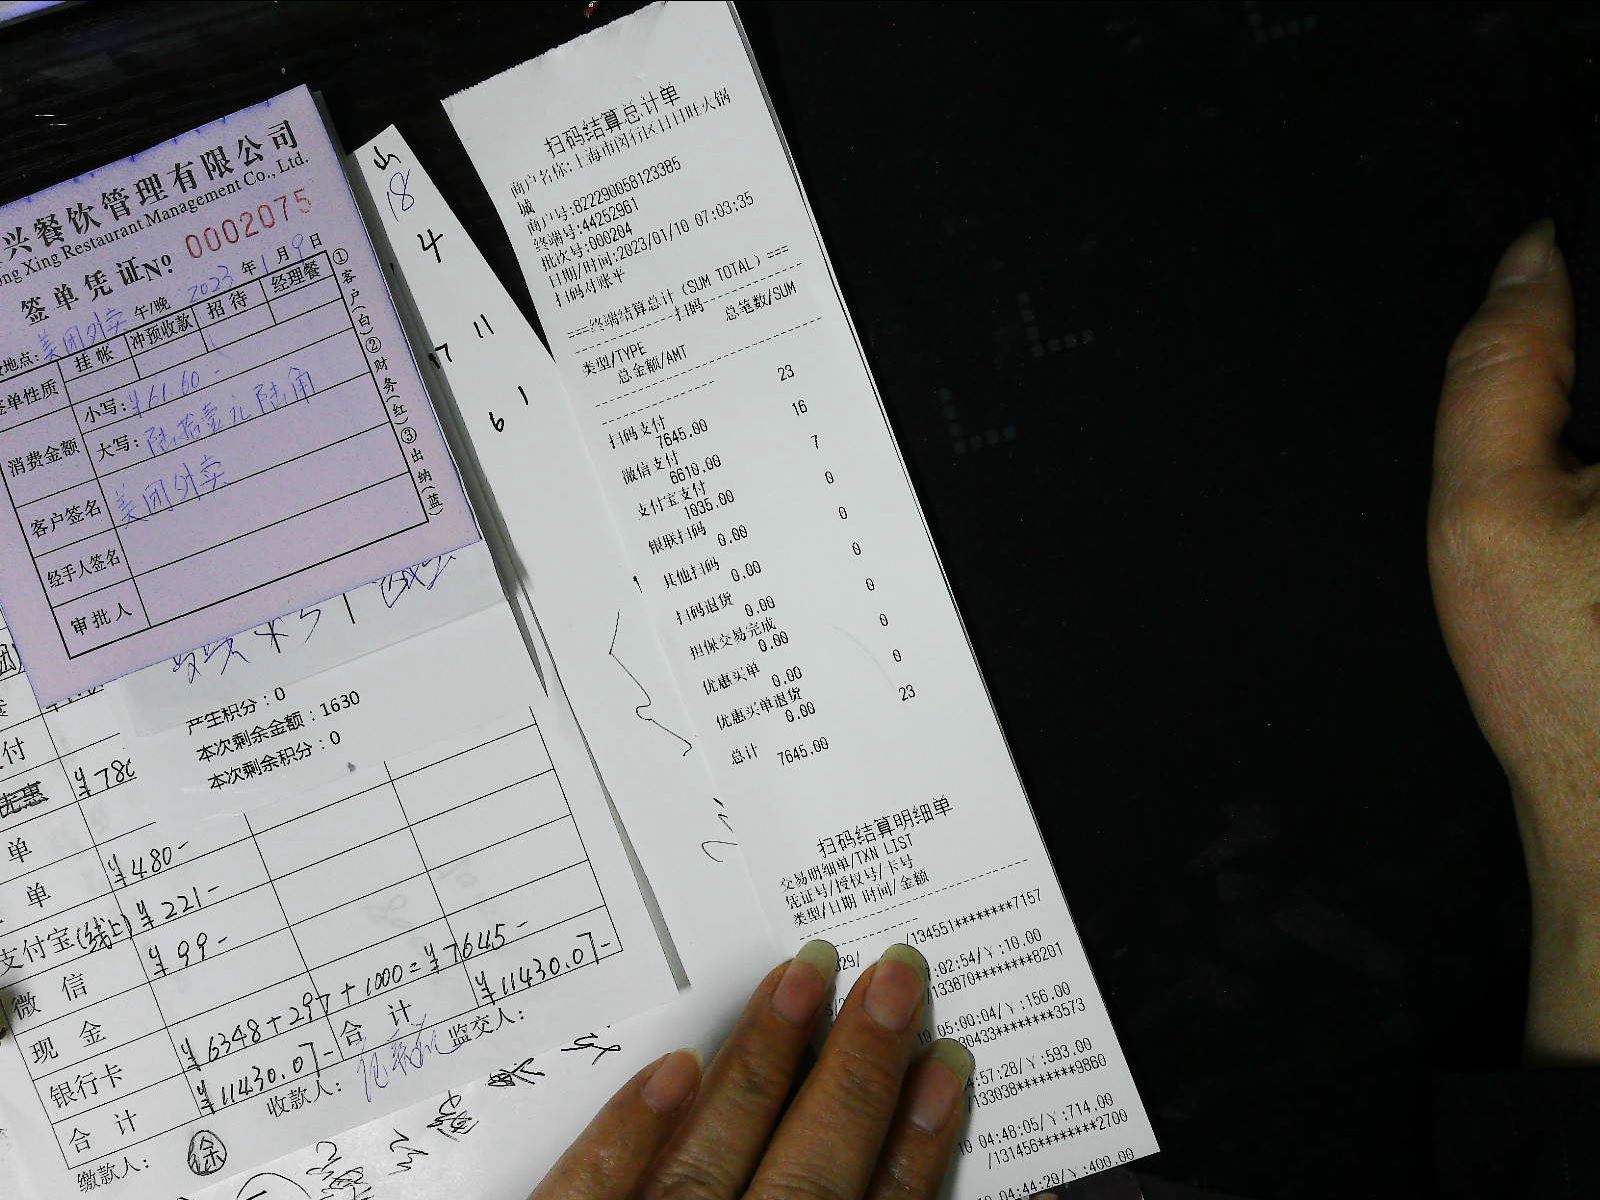 兴餐饮管理有限公司
ong Xing Restaurant Management Co., Ltd.
签单凭证No 0002075
地点: 美团外卖 午/晚 2023年1月9日
单性质 挂帐 冲预收款 招待 经理餐
消费金额 小写: ¥61.60-
大写: 陆拾壹元陆角
客户签名 美团外卖
经手人签名
审批人
①客户(白)②财务(红)③出纳(蓝)
产生积分：0
本次剩余金额：1630
本次剩余积分：0
付 ¥780
单 ¥480-
单 ¥221-
支付宝(线上) ¥99-
微信
现金
银行卡 ¥6348+297+1000=¥7645-
合计 ¥11430.07- 合计 ¥11430.07-
缴款人: 徐 收款人: 监交人:
山
18
4
11
17
6 1
扫码结算总计单
商户名称:上海市闵行区日日旺火锅
城
商户号:822290058123385
终端号:44252961
批次号:000204
日期/时间:2023/01/10 07:03:35
扫码对账平
===终端结算总计 (SUM TOTAL)===
扫码
类型/TYPE 总笔数/SUM
总金额/AMT
扫码支付 23
7645.00
微信支付 16
6610.00
支付宝支付 7
1035.00
银联扫码 0
0.00
其他扫码 0
0.00
扫码退货 0
0.00
担保交易完成 0
0.00
优惠买单 0
0.00
优惠买单退货 0
0.00
总计 23
7645.00
扫码结算明细单
交易明细单/TXN LIST
凭证号/授权号/卡号
类型/日期 时间/金额
329/ /134551********7157
:02:54/Y:10.00
/133870********8201
10 05:00:04/Y:156.00
30433********3573
4:57:28/Y:593.00
/133038********9860
10 04:48:05/Y:714.00
/131456********2700
10 04:44:20/Y:400.00